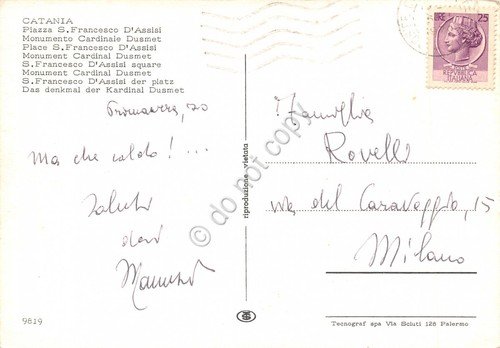 CATANIA
Piazza S. Francesco D'Assisi
Monumento Cardinale Dusmet
Place S. Francesco D'Assisi
Monument Cardinal Dusmet
S. Francesco D'Assisi square
Monument Cardinal Dusmet
S. Francesco D'Assisi der platz
Das denkmal der Kardinal Dusmet
70
Ma che caldo! ...
Saluti
LIRE 25
REPUBBLICA
ITALIANA
Famiglia
Rovelli
via del Caravaggio, 15
Milano
riproduzione vietata
© do not copy
9819
Tecnograf spa Via Sciuti 128 Palermo